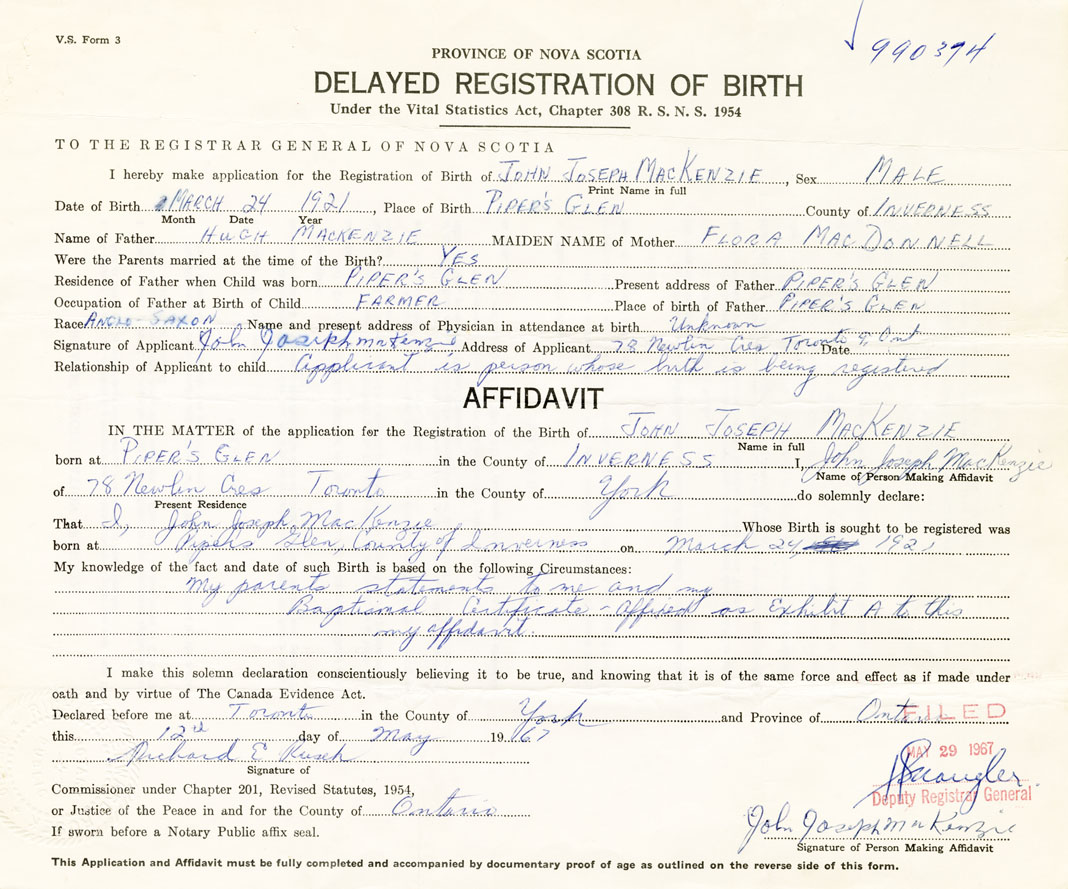 V.S. Form 3
990374
PROVINCE OF NOVA SCOTIA
DELAYED REGISTRATION OF BIRTH
Under the Vital Statistics Act, Chapter 308 R. S. N. S. 1954
TO THE REGISTRAR GENERAL OF NOVA SCOTIA
I hereby make application for the Registration of Birth of JOHN JOSEPH MACKENZIE, Sex MALE
Print Name in full
Date of Birth MARCH 24 1921, Place of Birth PIPER'S GLEN County of INVERNESS
Month Date Year
Name of Father HUGH MACKENZIE MAIDEN NAME of Mother FLORA MACDONNELL
Were the Parents married at the time of the Birth? YES
Residence of Father when Child was born PIPER'S GLEN Present address of Father PIPER'S GLEN
Occupation of Father at Birth of Child FARMER Place of birth of Father PIPER'S GLEN
Race ANGLO-SAXON Name and present address of Physician in attendance at birth Unknown
Signature of Applicant John Joseph MacKenzie Address of Applicant 78 Newlin Cres Toronto Ont Date
Relationship of Applicant to child Applicant is person whose birth is being registered
AFFIDAVIT
IN THE MATTER of the application for the Registration of the Birth of JOHN JOSEPH MACKENZIE
Name in full
born at PIPER'S GLEN in the County of INVERNESS I, John Joseph MacKenzie
Name of Person Making Affidavit
of 78 Newlin Cres Toronto in the County of York do solemnly declare:
Present Residence
That I, John Joseph MacKenzie Whose Birth is sought to be registered was
born at Pipers Glen, County of Inverness on March 24 1921
My knowledge of the fact and date of such Birth is based on the following Circumstances:
My parents statements to me and my
Baptismal Certificate - affixed as Exhibit A to this
my affidavit.
I make this solemn declaration conscientiously believing it to be true, and knowing that it is of the same force and effect as if made under
oath and by virtue of The Canada Evidence Act.
Declared before me at Toronto in the County of York and Province of Ontario
FILED
this 12th day of May 1967
MAY 29 1967
Richard E
Signature of
Deputy Registrar General
Commissioner under Chapter 201, Revised Statutes, 1954,
or Justice of the Peace in and for the County of Ontario
John Joseph MacKenzie
If sworn before a Notary Public affix seal.
Signature of Person Making Affidavit
This Application and Affidavit must be fully completed and accompanied by documentary proof of age as outlined on the reverse side of this form.